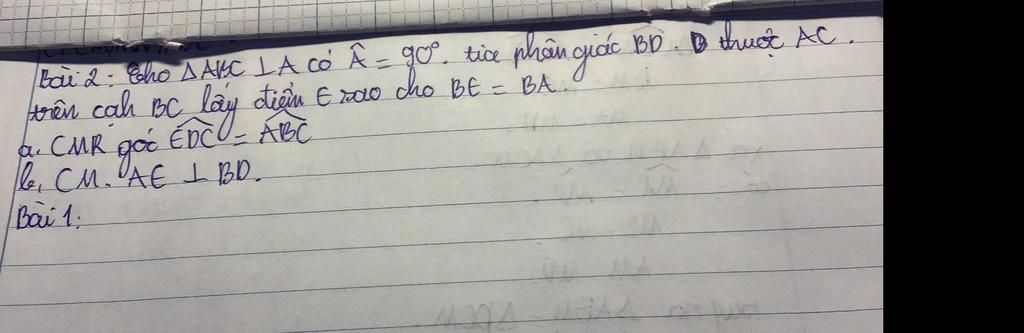 Bài 2: Cho ΔABC ⊥ A có Â = 90°. tia phân giác BD. D thuộc AC.
trên cạh BC lấy điểm E sao cho BE = BA.
a. CMR góc EDC = ABC
b, CM. AE ⊥ BD.
Bài 1: